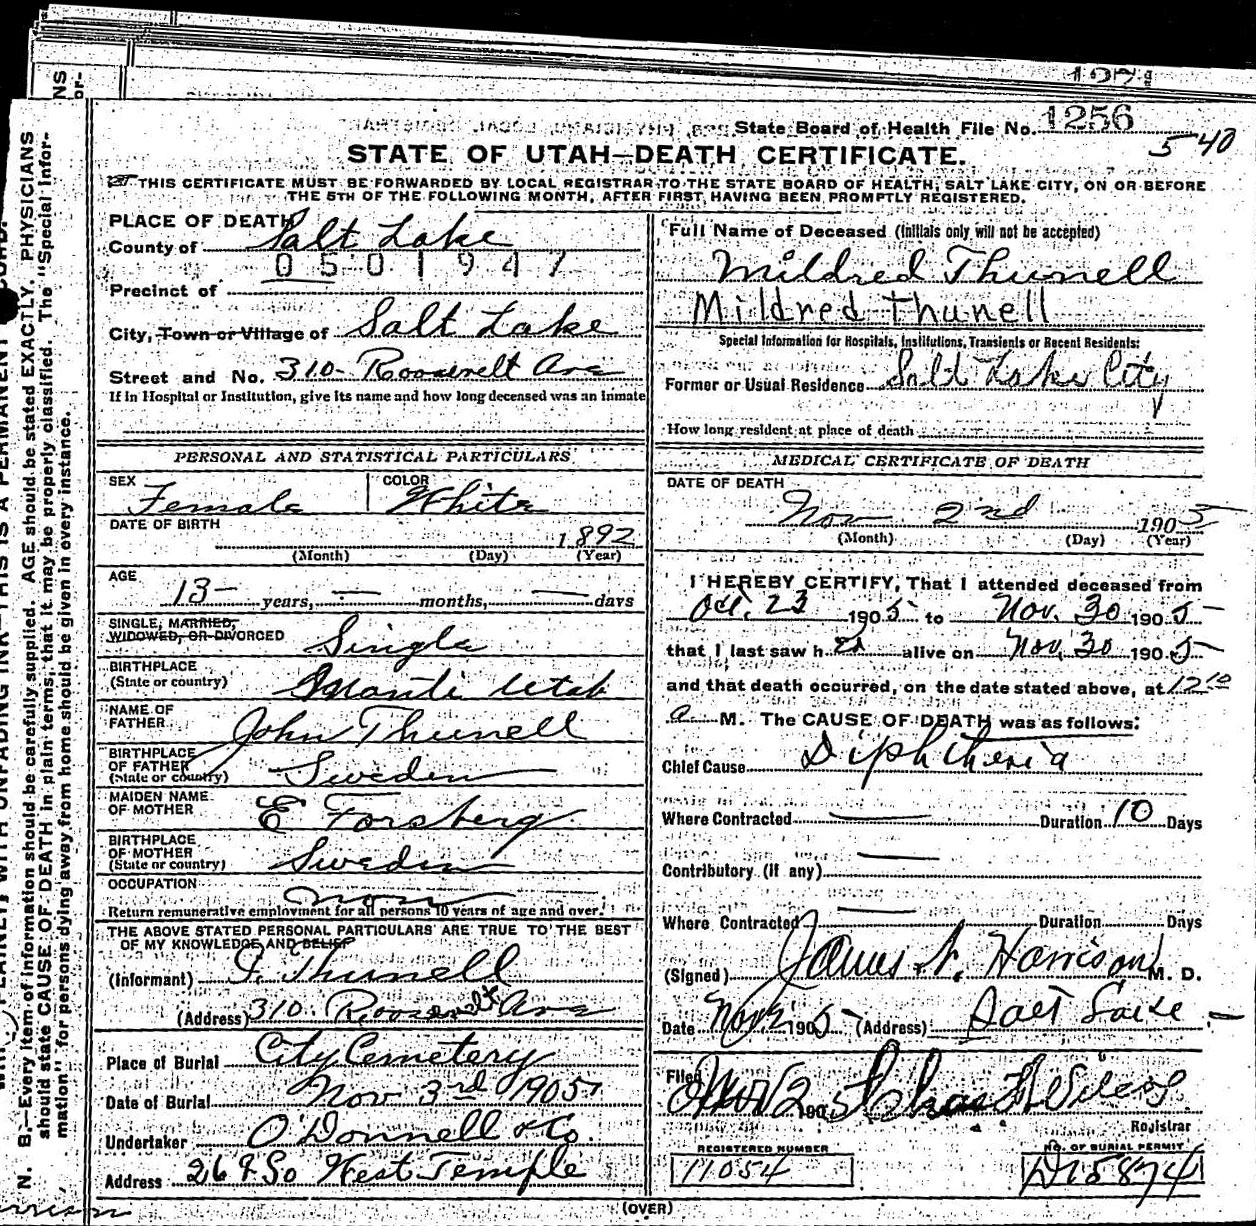 1256
State Board of Health File No.
5 40
STATE OF UTAH—DEATH CERTIFICATE.
THIS CERTIFICATE MUST BE FORWARDED BY LOCAL REGISTRAR TO THE STATE BOARD OF HEALTH, SALT LAKE CITY, ON OR BEFORE
THE 5TH OF THE FOLLOWING MONTH, AFTER FIRST HAVING BEEN PROMPTLY REGISTERED.
PLACE OF DEATH
County of Salt Lake
0501947
Precinct of
City, Town or Village of Salt Lake
Street and No. 310 - Roosevelt Ave
If in Hospital or Institution, give its name and how long deceased was an inmate
PERSONAL AND STATISTICAL PARTICULARS
SEX Female COLOR White
DATE OF BIRTH 1892
(Month) (Day) (Year)
AGE
13 - years, — months, — days
SINGLE, MARRIED,
WIDOWED, OR DIVORCED Single
BIRTHPLACE
(State or country) Manti Utah
NAME OF
FATHER John Thunell
BIRTHPLACE
OF FATHER
(State or country) Sweden
MAIDEN NAME
OF MOTHER E Forsberg
BIRTHPLACE
OF MOTHER
(State or country) Sweden
OCCUPATION
Return remunerative employment for all persons 10 years of age and over.
THE ABOVE STATED PERSONAL PARTICULARS ARE TRUE TO THE BEST
OF MY KNOWLEDGE AND BELIEF
(Informant) Thunell
(Address) 310. Roosevelt Ave
Place of Burial City Cemetery
Date of Burial Nov 3rd 1905
Undertaker O'Donnell & Co.
Address So West Temple
Full Name of Deceased (Initials only will not be accepted)
Mildred Thunell
Mildred Thunell
Special Information for Hospitals, Institutions, Transients or Recent Residents:
Former or Usual Residence Salt Lake City
How long resident at place of death
MEDICAL CERTIFICATE OF DEATH
DATE OF DEATH
Nov 2nd 1905
(Month) (Day) (Year)
I HEREBY CERTIFY, That I attended deceased from
Oct. 23 1905 to Nov. 30 1905
that I last saw her alive on Nov. 30 1905
and that death occurred, on the date stated above, at 12 10
a M. The CAUSE OF DEATH was as follows:
Chief Cause Diphtheria
Where Contracted — Duration 10 Days
Contributory (if any) —
Where Contracted — Duration Days
(Signed) James N. Harrison M. D.
Date Nov 2 1905 (Address) Salt Lake
Filed Nov 2 1905 Chas Wilcox
Registrar
REGISTERED NUMBER
11054
NO. OF BURIAL PERMIT
D15874
(OVER)
N. B.—Every item of information should be carefully supplied. AGE should be stated EXACTLY. PHYSICIANS
should state CAUSE OF DEATH in plain terms, that it may be properly classified. The "Special Infor-
mation" for persons dying away from home should be given in every instance.